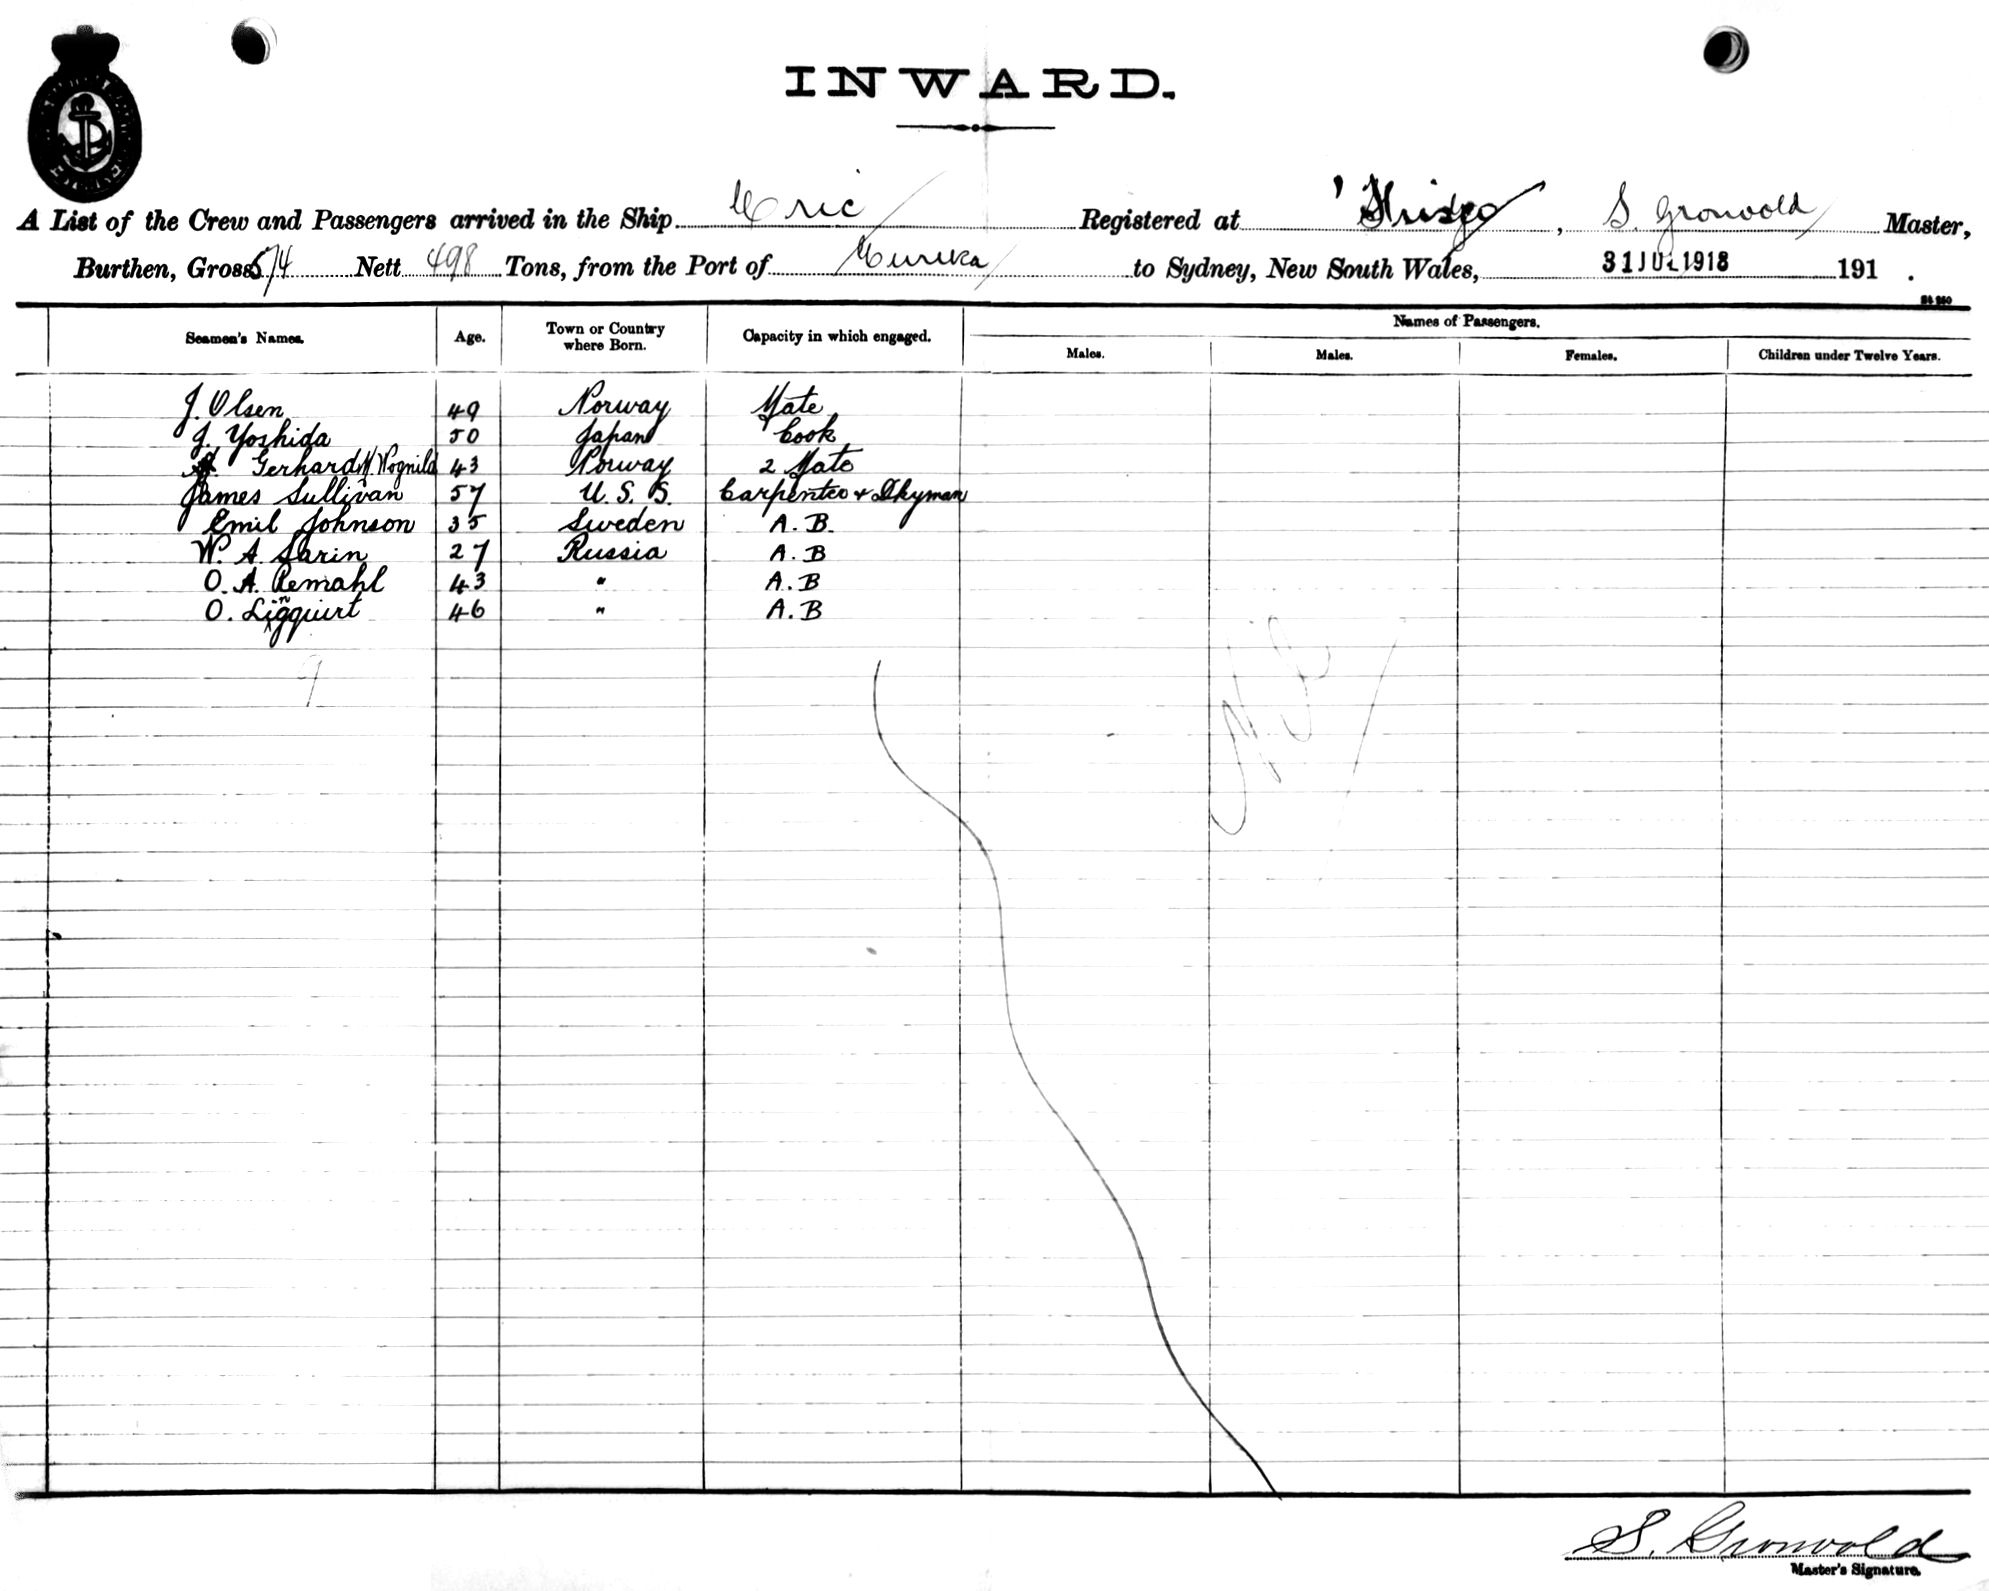 INWARD.
A List of the Crew and Passengers arrived in the Ship Eric Registered at 'Frisco, S. Gronvold Master,
Burthen, Gross 574 Nett 498 Tons, from the Port of Eureka to Sydney, New South Wales, 31 JUL 1918 191 .
Seamen's Names. Age. Town or Country where Born. Capacity in which engaged. Names of Passengers.
Males. Males. Females. Children under Twelve Years.
J. Olsen 49 Norway Mate
J. Yoshida 50 Japan Cook
Gerhard M. Wognild 43 Norway 2 Mate
James Sullivan 57 U. S. S. Carpenter &
Emil Johnson 35 Sweden A. B.
W. A. Sarin 27 Russia A. B
O. A. Remahl 43 " A. B
O. 46 " A. B
9
Nil
S. Gronvold
Master's Signature.